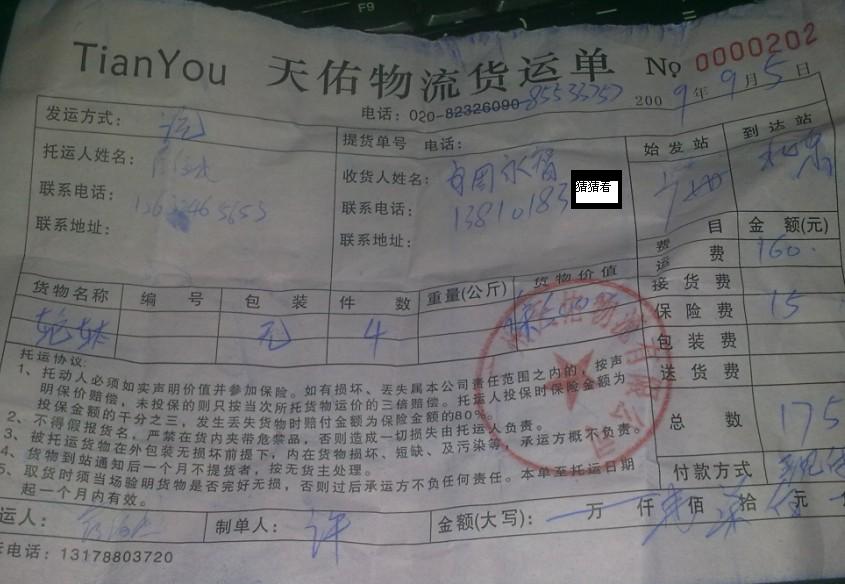 F9
TianYou 天佑物流货运单 No 0000202
电话：020-82326090-85533757 2009年9月5日
发运方式：
提货单号 电话：
始发站 到达站
托运人姓名：
收货人姓名：
联系电话：
联系电话：13810183
猪猪看
联系地址：
联系地址：
费目 金额(元)
运费 160.
接货费
货物名称 编号 包装 件数 重量(公斤) 货物价值
保险费 15
轮妹 无 4
包装费
送货费
总数 175
付款方式
托运协议:
1、托动人必须如实声明价值并参加保险。如有损坏、丢失属本公司责任范围之内的，按声
明保价赔偿，未投保的则只按当次所托货物运价的三倍赔偿。托运人投保时保险金额为
投保金额的千分之三，发生丢失货物时赔付金额为保险金额的80%。
2、不得假报货名，严禁在货内夹带危禁品，否则造成一切损失由托运人负责。
3、被托运货物在外包装无损坏前提下，内在货物损坏、短缺、及污染等，承运方概不负责。
4、货物到站通知后一个月不提货者，按无货主处理。
5、取货时须当场验明货物是否完好无损，否则过后承运方不负任何责任。本单至托运日期
起一个月内有效。
运人： 制单人：许 金额(大写)： 万 仟 佰 柒拾伍元
电话：13178803720